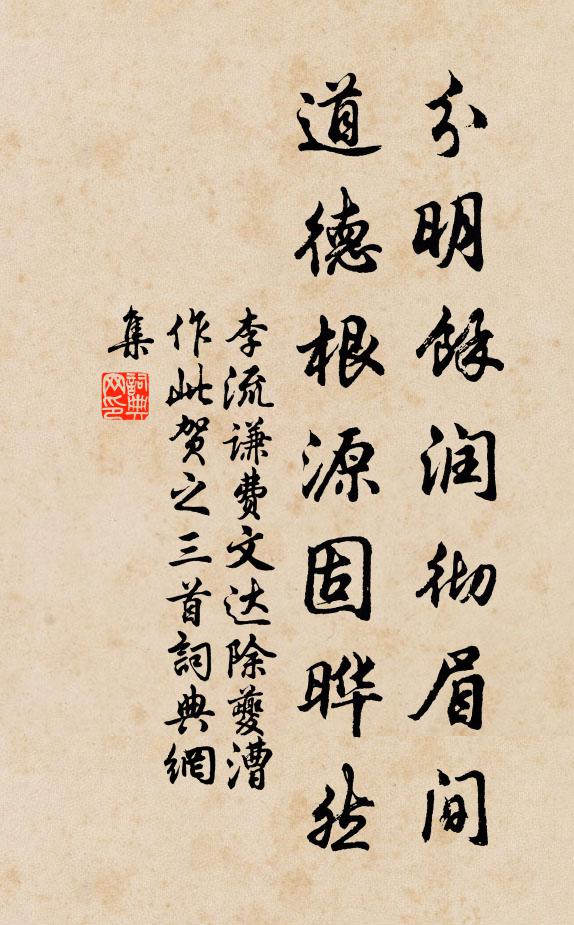 分明馀润彻眉间
道德根源固晔然
李流谦费文达除夔漕
作此贺之三首詞典網
集
詞典
网印